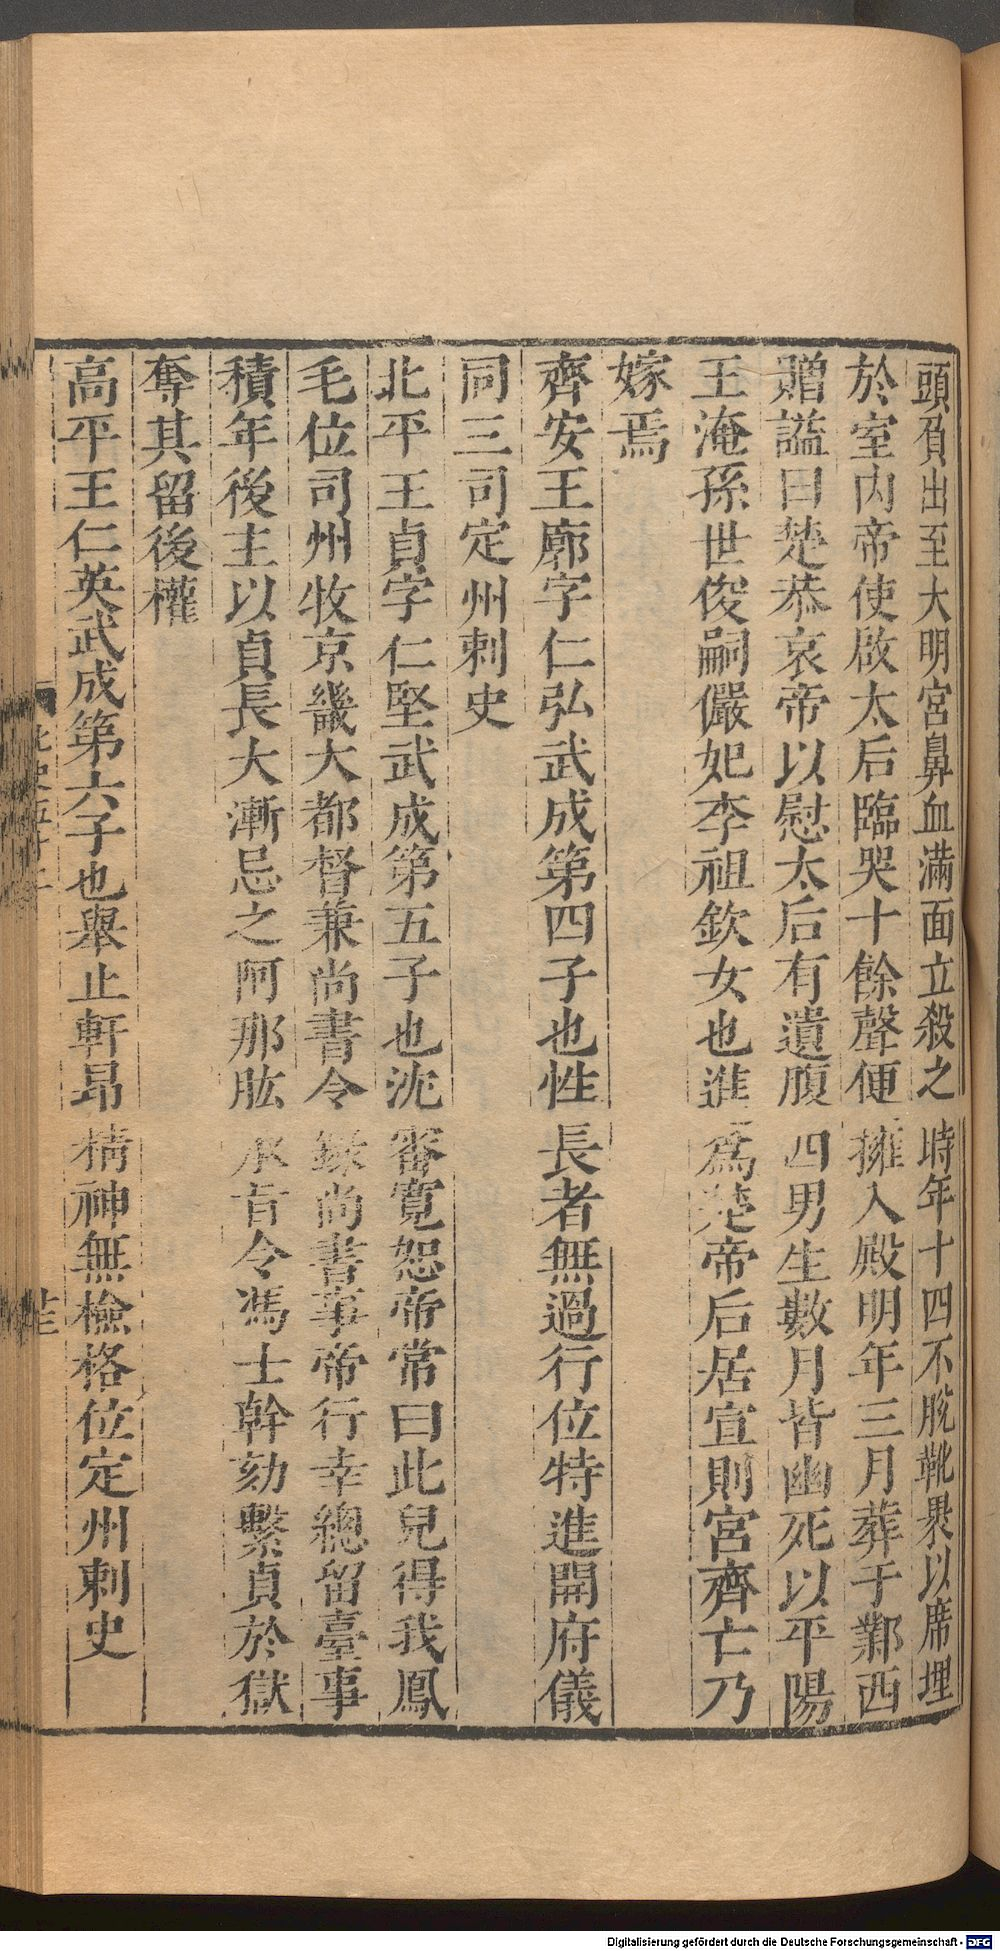 頭負出至大明宮鼻血滿面立殺之時年十四不脫靴裹以席埋
於室內帝使啟太后臨哭十餘聲便擁入殿明年三月葬于鄴西
贈諡曰楚恭哀帝以慰太后有遺腹四男生數月皆幽死以平陽
王淹孫世俊嗣儼妃李祖欽女也進為楚帝后居宣則宮齊亡乃
嫁焉
齊安王廓字仁弘武成第四子也性長者無過行位特進開府儀
同三司定州刺史
北平王貞字仁堅武成第五子也沈審寬恕帝常曰此兒得我鳳
毛位司州牧京畿大都督兼尚書令錄尚書事帝行幸總留臺事
積年後主以貞長大漸忌之阿那肱承旨令馮士幹劾繫貞於獄
奪其留後權
高平王仁英武成第六子也舉止軒昂精神無檢格位定州刺史
Digitalisierung gefördert durch die Deutsche Forschungsgemeinschaft - DFG